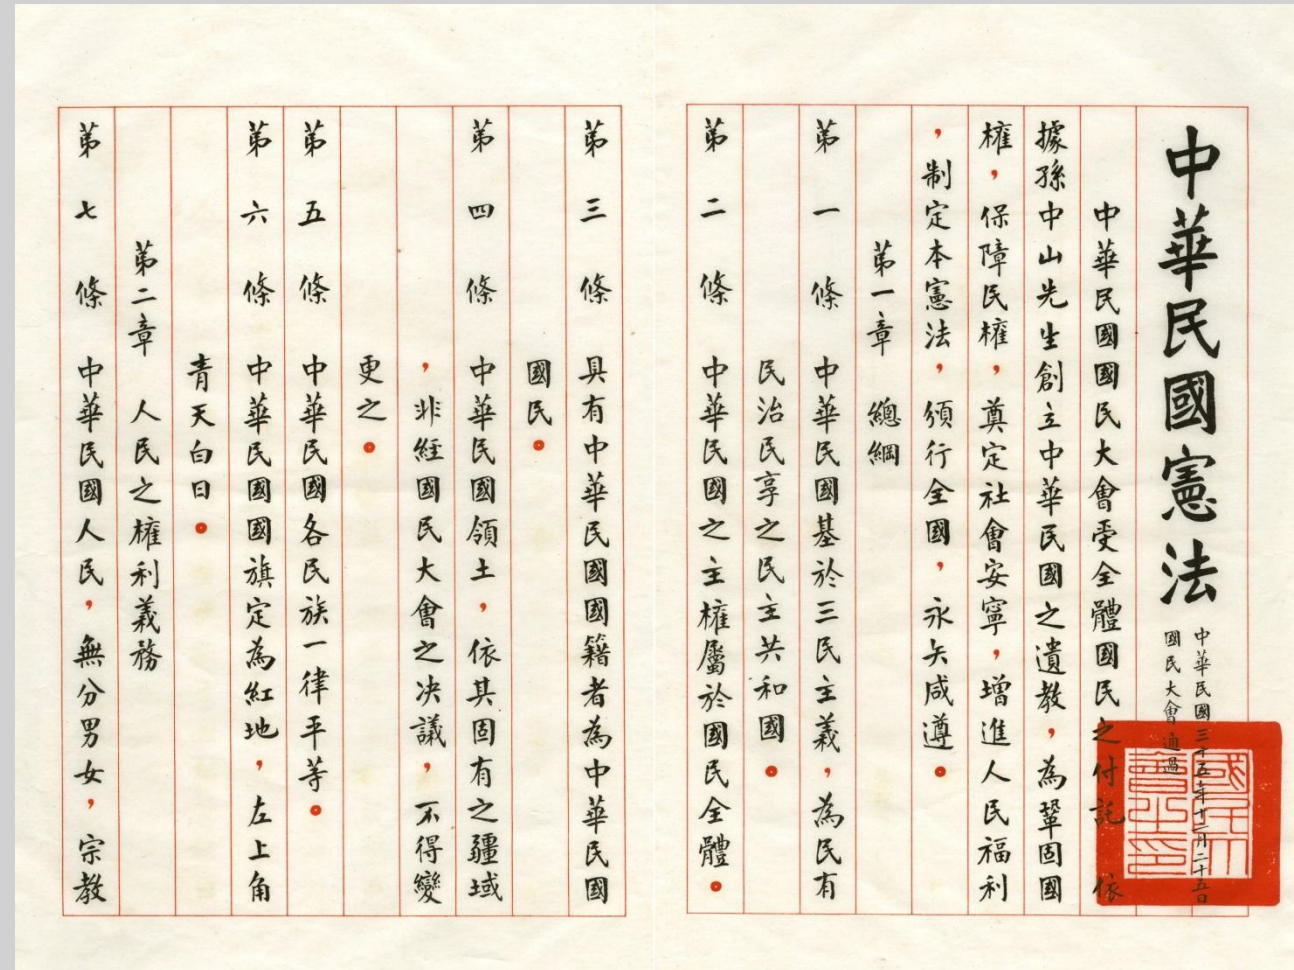 中華民國憲法
中華民國三十五年十二月二十五日
國民大會通過
中華民國國民大會受全體國民之付託，依
據孫中山先生創立中華民國之遺教，為鞏固國
權，保障民權，奠定社會安寧，增進人民福利
，制定本憲法，頒行全國，永矢咸遵。
第一章　總綱
第一條　中華民國基於三民主義，為民有
民治民享之民主共和國。
第二條　中華民國之主權屬於國民全體。
第三條　具有中華民國國籍者為中華民國
國民。
第四條　中華民國領土，依其固有之疆域
，非經國民大會之決議，不得變
更之。
第五條　中華民國各民族一律平等。
第六條　中華民國國旗定為紅地，左上角
青天白日。
第二章　人民之權利義務
第七條　中華民國人民，無分男女，宗教
國民大
會之印